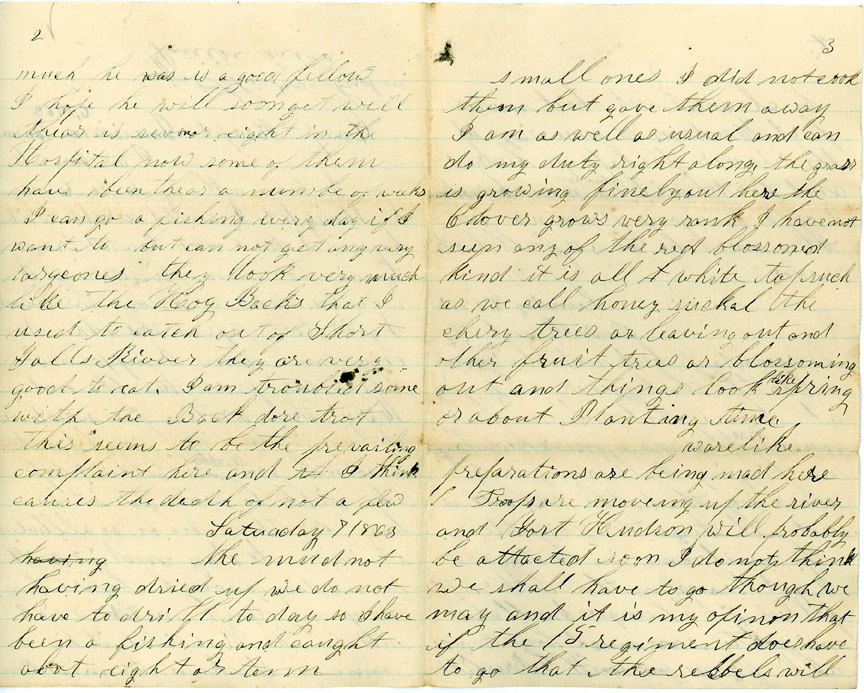 2
much he was is a good fellow
I hope he will soon get well
thear is seven or eight in the
Hospital now some of them
have been thear a numbe of weeks
I can go a fishing every day if I
want to but can not get any very
large ones they look very much
like the Hog Backs that I
used to catch out of Short
Falls River they are very
good to eat. I am troubled some
with the Back dore trot
this seems to be the prevailing
complaint here and I think
causes the death of not a few
Satuaday 7/1863
having the mud not
having dried up we do not
have to drill to day so I have
been a fishing and caught
abot eight or tenn
3
small ones I did not cook
them but gave them away
I am as well as usual and can
do my duty right along, the grass
is growing finely out here the
Clover grows very rank I have not
seen any of the red blossomed
kind it is all white to much
as we call honey suckal the
chery trees ar leaving out and
other fruit trees ar blossoming
out and things look like spring
or about Planting time
warelike
preparations are being mad here
Troops are moving up the river
and Port Hudson will probably
be attacted soon I do not think
we shall have to go though we
may and it is my opinon that
if the 15 regiment does have
to go that the rebbels will